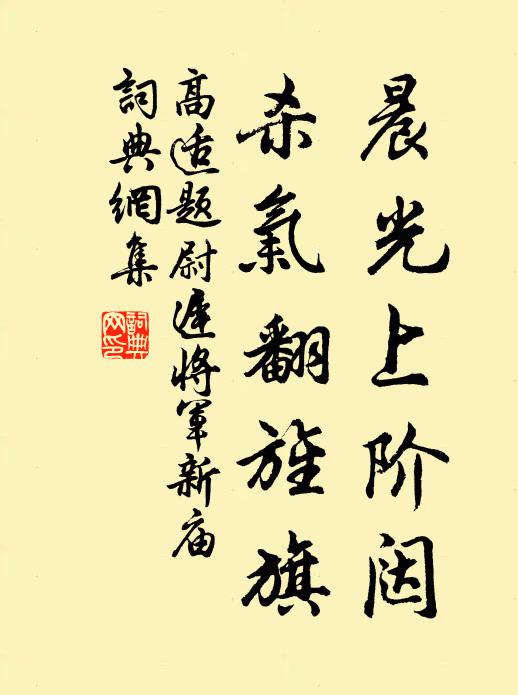 晨光上阶闼
杀氣翻旌旗
高适题尉遲將軍新庙
詞典網集
詞典网印